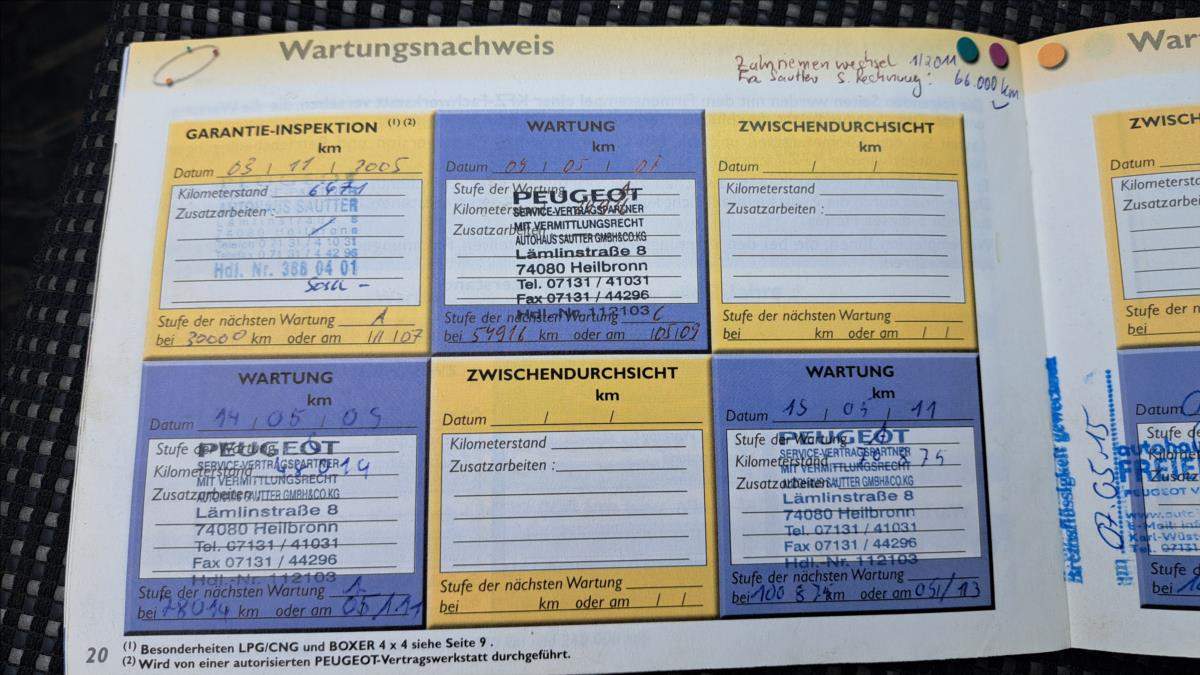 Wartungsnachweis
Zahnriemenwechsel 1/2011
Fa Sautter s. Rechnung: 66.000 km
GARANTIE-INSPEKTION (1) (2)
km
Datum 03 / 11 / 2005
Kilometerstand 6471
Zusatzarbeiten :
AUTOHAUS SAUTTER
74080 Heilbronn
Telefon 0 71 31 / 4 10 31
Telefax 0 71 31 / 4 42 96
Hdl. Nr. 368 04 01
Stufe der nächsten Wartung A
bei 30000 km oder am 11/07
WARTUNG
km
Datum 09 / 05 /
Stufe der Wartung
Kilometerstand
Zusatzarbeiten
PEUGEOT
SERVICE-VERTRAGSPARTNER
MIT VERMITTLUNGSRECHT
AUTOHAUS SAUTTER GMBH&CO.KG
Lämlinstraße 8
74080 Heilbronn
Tel. 07131 / 41031
Fax 07131 / 44296
Hdl.-Nr. 112103
Stufe der nächsten Wartung C
bei 54916 km oder am 05/09
ZWISCHENDURCHSICHT
km
Datum / /
Kilometerstand
Zusatzarbeiten :
Stufe der nächsten Wartung
bei km oder am / /
WARTUNG
km
Datum 14 / 05 / 09
Stufe der Wartung
Kilometerstand 48014
Zusatzarbeiten
PEUGEOT
SERVICE-VERTRAGSPARTNER
MIT VERMITTLUNGSRECHT
AUTOHAUS SAUTTER GMBH&CO.KG
Lämlinstraße 8
74080 Heilbronn
Tel. 07131 / 41031
Fax 07131 / 44296
Hdl.-Nr. 112103
Stufe der nächsten Wartung A
bei 78014 km oder am 05/11
ZWISCHENDURCHSICHT
km
Datum / /
Kilometerstand
Zusatzarbeiten :
Stufe der nächsten Wartung
bei km oder am / /
WARTUNG
km
Datum 19 / 05 / 11
Stufe der Wartung
Kilometerstand
Zusatzarbeiten
PEUGEOT
SERVICE-VERTRAGSPARTNER
MIT VERMITTLUNGSRECHT
AUTOHAUS SAUTTER GMBH&CO.KG
Lämlinstraße 8
74080 Heilbronn
Tel. 07131 / 41031
Fax 07131 / 44296
Hdl.-Nr. 112103
Stufe der nächsten Wartung
bei 100 875 km oder am 05/13
20
(1) Besonderheiten LPG/CNG und BOXER 4 x 4 siehe Seite 9 .
(2) Wird von einer autorisierten PEUGEOT-Vertragswerkstatt durchgeführt.
Bremsflüssigkeit gewechselt
07.05.15
War
ZWISC
Datum
Kilometersta
Zusatzarbe
Stufe der n
bei
Datum
Stufe de
autoha
FREIE
PEUGEOT V
www.aut
E-Mail: in
Karl-Wüst
Tel. 0713
Stufe de
bei